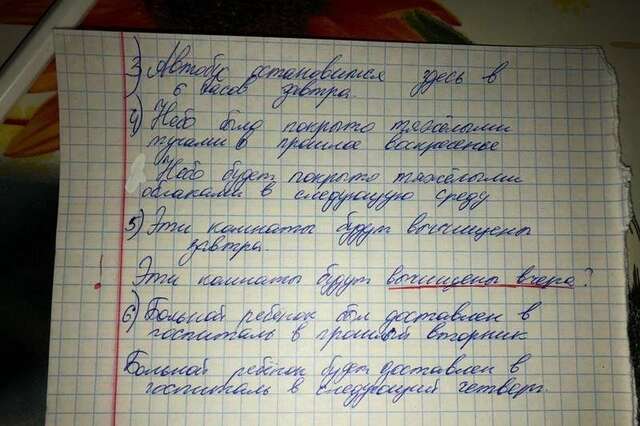 3) Автобус остановится здесь в
6 часов завтра.
4) Небо было покрыто тяжёлыми
тучами в прошлое воскресенье
Небо будет покрыто тяжёлыми
облаками в следующую среду
5) Эти комнаты будут вычищены
завтра.
! Эти комнаты будут вычищены вчера?
6) Больной ребёнок был доставлен в
госпиталь в прошлый вторник.
Больной ребёнок будет доставлен в
госпиталь в следующий четверг.